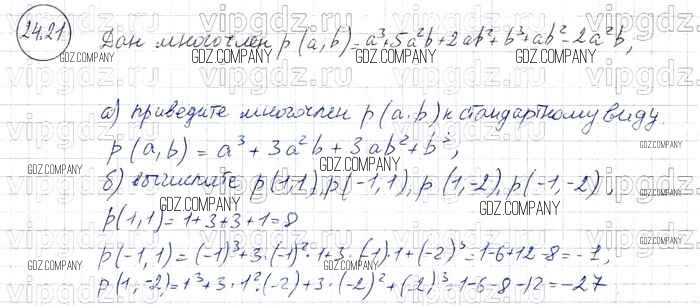 24.21
Дан многочлен p(a,b) = a³+5a²b+2ab²+b³+ab²-2a²b,
а) приведите многочлен p(a.b) к стандартному виду
p(a,b) = a³+3a²b+3ab²+b³,
б) вычислите p(1,1), p(-1,1), p(1,-2), p(-1,-2),
p(1,1)=1+3+3+1=8
p(-1,1)=(-1)³+3·(-1)²·1+3·(-1)·1+(-2)³=1-6+12-8=-1,
p(1,-2)=1³+3·1²·(-2)+3·(-2)²+(-2)³=1-6-8-12=-27
GDZ.COMPANY
vipgdz.ru